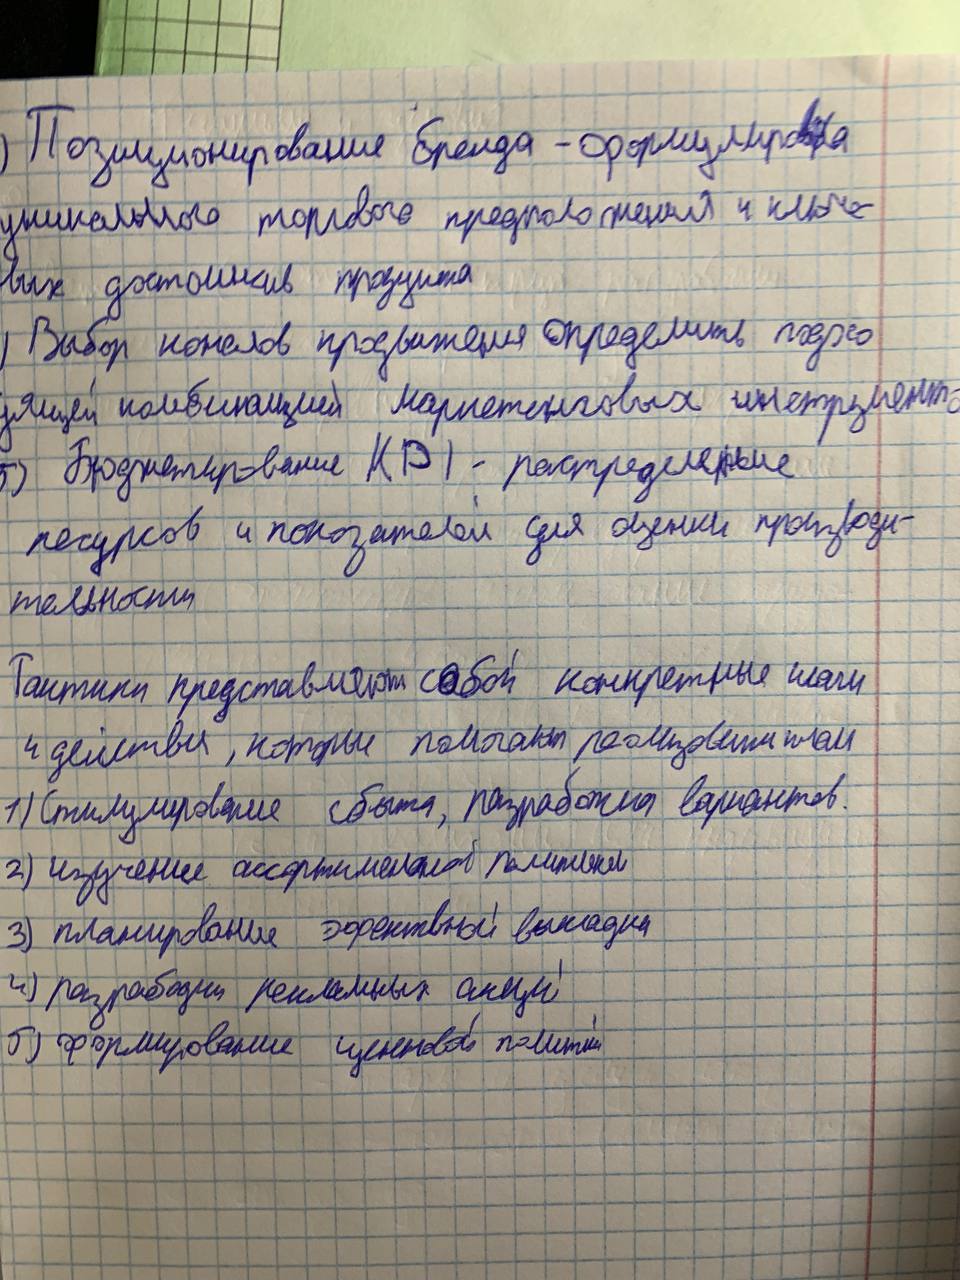 ) Позиционирование бренда - формулировка
уникального торгового предположения и ключе-
вых достоинсв продукта
) Выбор каналов продвижения определить подхо
дящей комбинацией маркетинговых инструменто
5) Бюджетирование KPI - распределение
ресурсов и показателей для оценки производи-
тельности
Тактики представляют собой конкретные шаги
и действия, которые помогают реализовети план
1) Стимулирование сбыта, разработка вариантов.
2) изучение ассортименоной политики
3) планирование эффективной выкладки
4) разработки рекламных акций
5) формирование ценновой политики